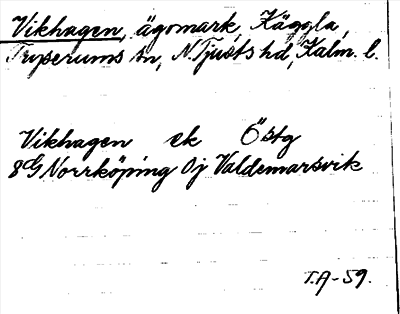 Vikhagen, ägomark, Käggla,
Tryserums sn, N. Tjusts hd, Kalm. l.
Vikhagen ek Östg
8G Norrköping Öj Valdemarsvik
T.A-59.